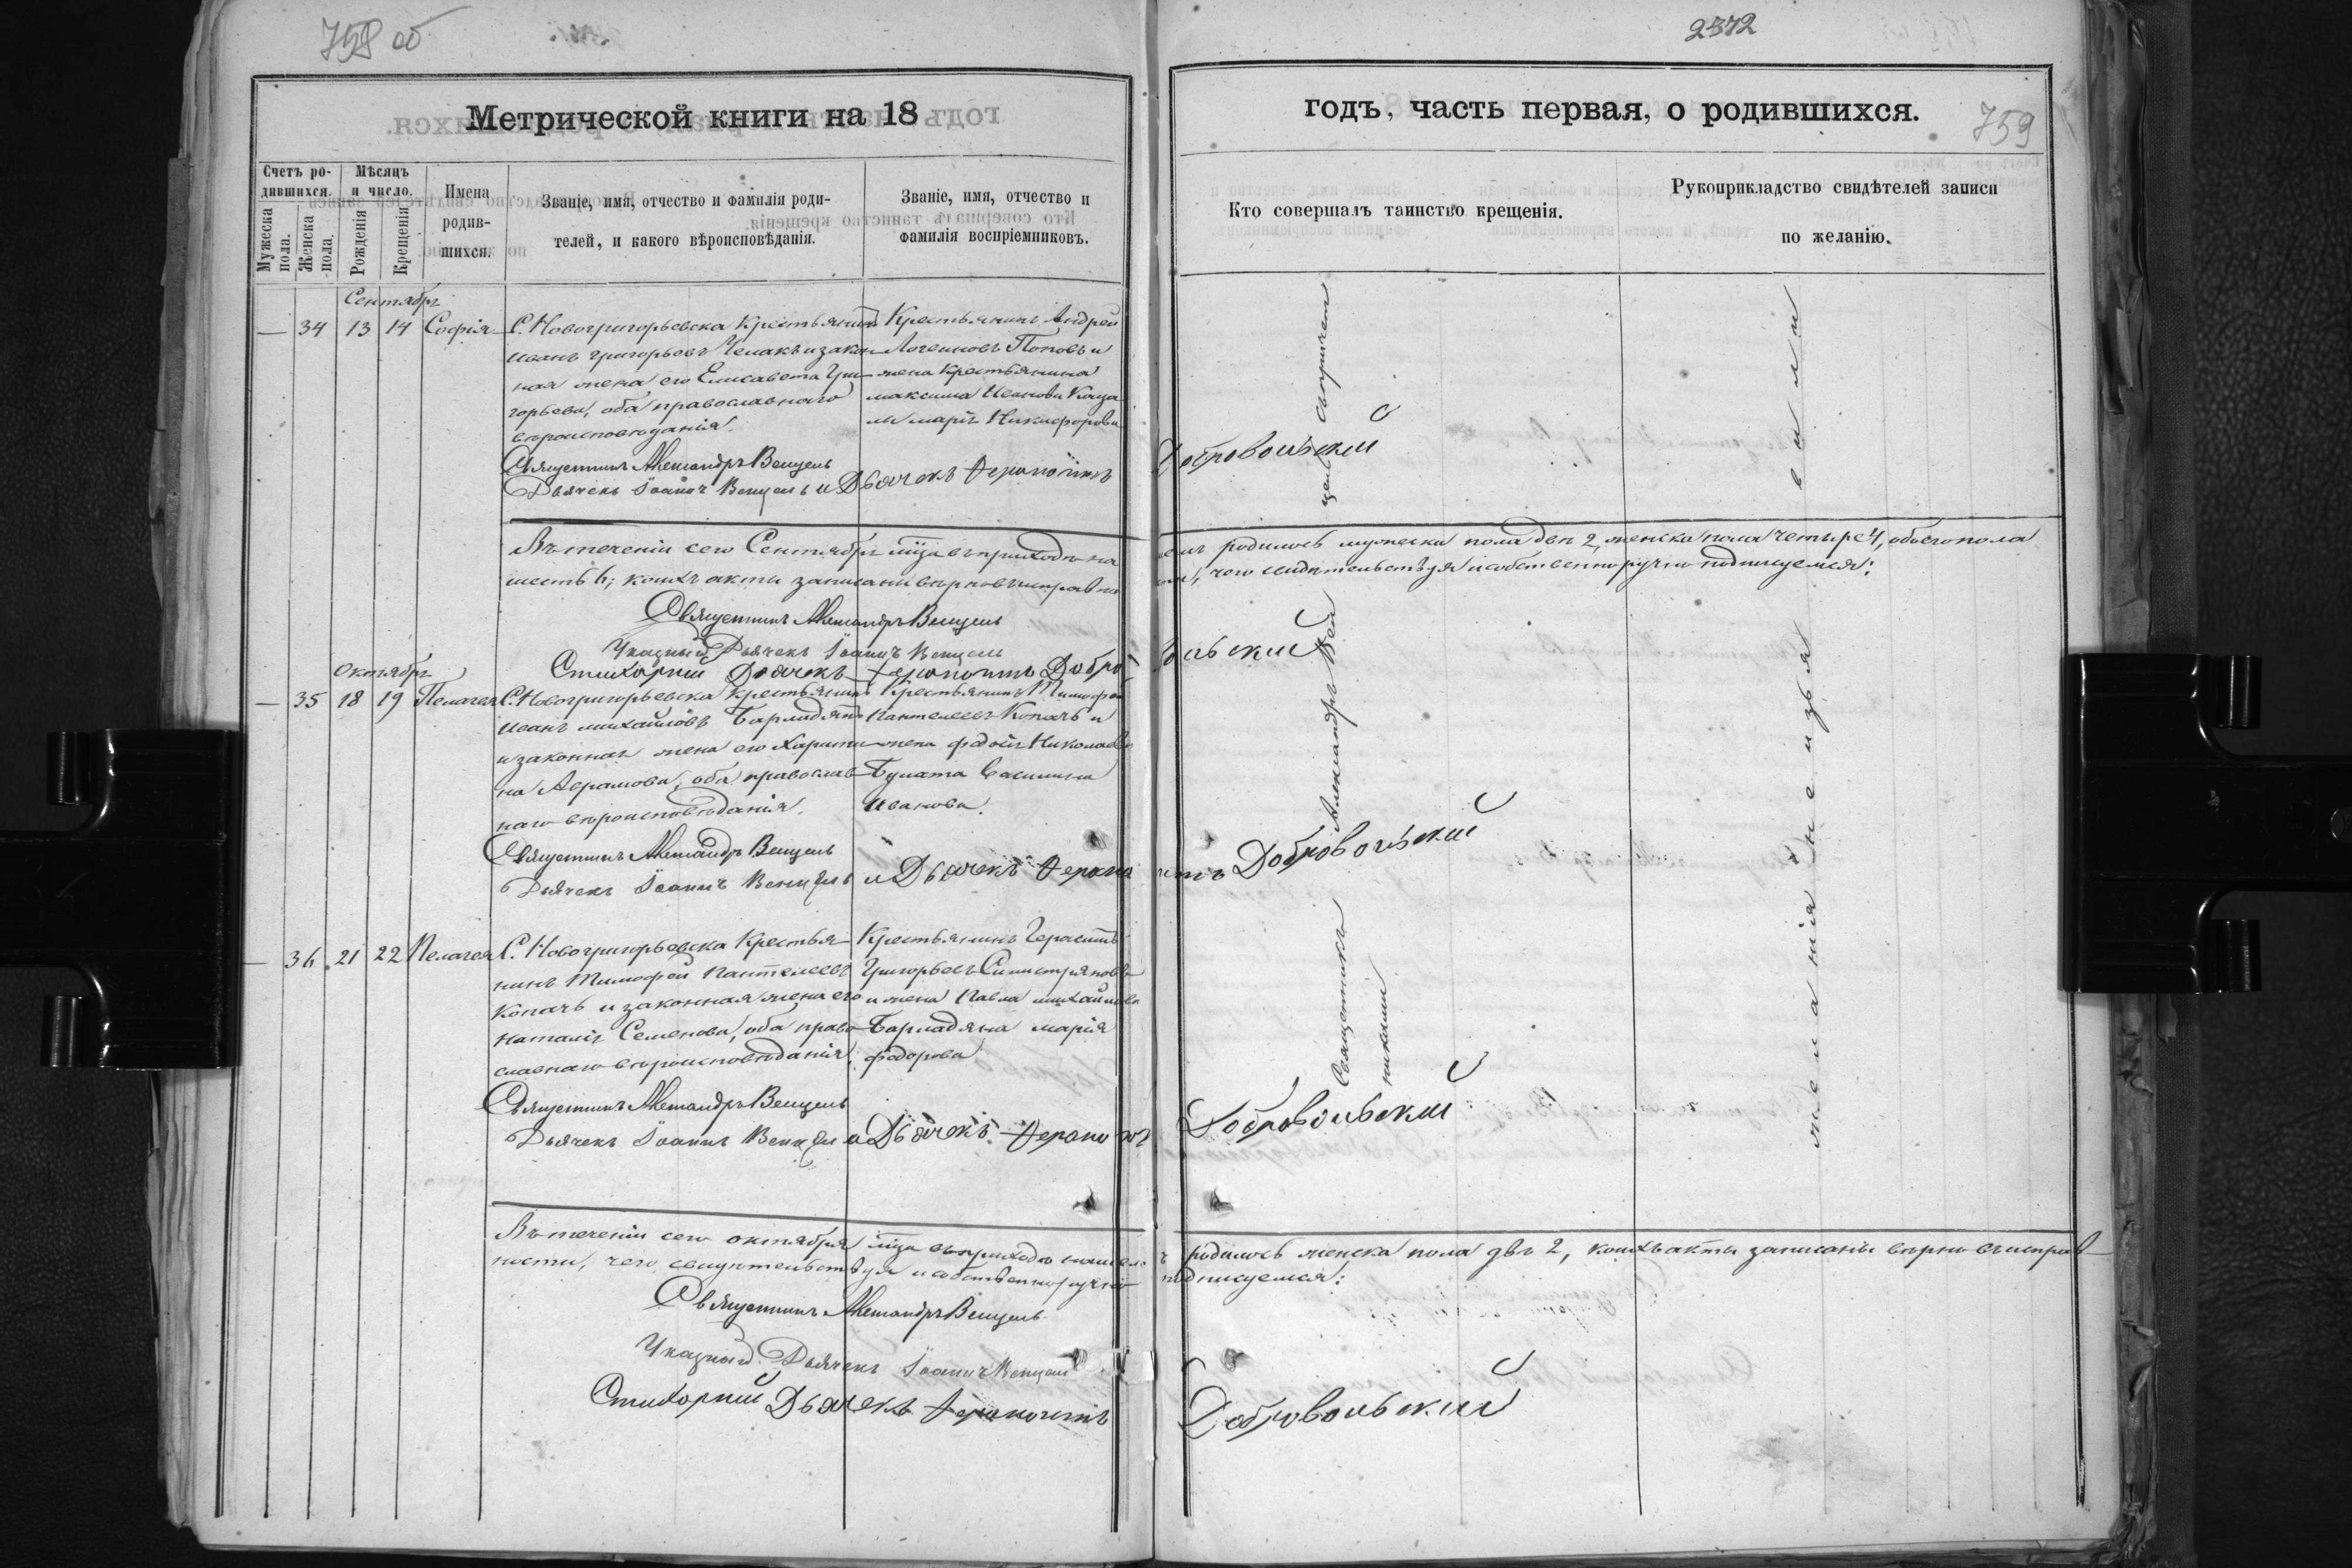 758 об
2372
759
Метрической книги на 18
годъ, часть первая, о родившихся.
Счетъ родившихся.
Мужеска пола.
Женска пола.
Мѣсяцъ и число.
Рожденія
Крещенія
Имена родившихся.
Званіе, имя, отчество и фамилія родителей, и какого вѣроисповѣданія.
Званіе, имя, отчество и фамилія воспріемниковъ.
Кто совершалъ таинство крещенія.
Рукоприкладство свидѣтелей записи по желанію.
Сентябрь
— 34 13 14 Софія
С. Новогригорьевска Крестьянинъ
Иванъ Григорьевъ Челакъ и закон
ная жена его Елисавета Гри
горьева, оба православнаго
вѣроисповѣданія.
Крестьянинъ Андрей
Логиновъ Поповъ и
жена крестьянина
Максима Иванова
Марія Никифорова
Священникъ Александръ Венцель
Дьячекъ Іоаннъ Венцель и Дьячекъ Ферапонтъ Добровольскій
Въ теченіи сего Сентября мца въ приходѣ на
шемъ родилось мужеска пола два 2, женска пола четыре 4, обоего пола
шесть 6; коихъ акты записаны вѣрно въ исправно
сти, чего свидѣтельствуя и собственноручно подписуемся:
Священникъ Александръ Венцель
Указный Дьячекъ Іоаннъ Венцель
Стихарный Дьячекъ Ферапонтъ Добровольскій
Октябрь
— 35 18 19 Пелагея
С. Новогригорьевска крестьянинъ
Иванъ Михайловъ Барладянъ
и законная жена его Харити
на Аврамова, оба православ
наго вѣроисповѣданія.
Крестьянинъ Тимофей
Пантелеевъ Копачъ и
жена Николаева
Булата Василина
Иванова.
Священникъ Александръ Венцель
Дьячекъ Іоаннъ Венцель и Дьячекъ Ферапонтъ Добровольскій
— 36 21 22 Пелагея
С. Новогригорьевска Крестья
нинъ Тимофей Пантелеевъ
Копачъ и законная жена его
Наталія Семенова, оба право
славнаго вѣроисповѣданія.
Крестьянинъ Герасимъ
Григорьевъ
и жена Павла Михайлова
Барладяна Марія
Федорова
Священникъ Александръ Венцель
Дьячекъ Іоаннъ Венцель и Дьячекъ Ферапонтъ Добровольскій
Въ теченіи сего октября мца въ приходѣ нашемъ родилось женска пола двѣ 2, коихъ акты записаны вѣрно въ исправ
ности, чего свидѣтельствуя и собственноручно подписуемся:
Священникъ Александръ Венцель
Указный Дьячекъ Іоаннъ Венцель
Стихарный Дьячекъ Ферапонтъ Добровольскій
Священникъ Александръ Венцель съ причетниками
желанія не изъявили